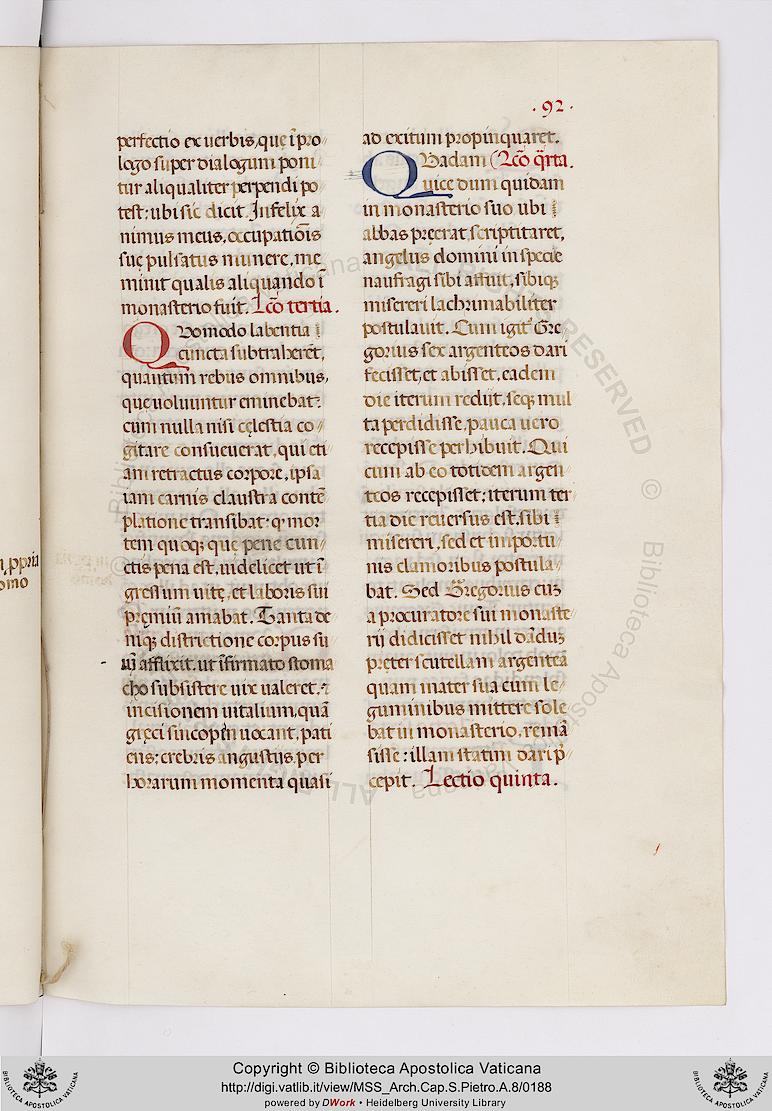 · 92 ·
perfectio ex uerbis, quę ĩ pro
logo super dialogum poni
tur aliqualiter perpendi po
test: ubi sic dicit. Infelix a
nimus meus, occupatiõis
suę pulsatus munere, me
minit qualis aliquando ĩ
monasterio fuit. Lcõ tertia.
Quomodo labentia
cuncta subtraherẽt,
quantum rebus omnibus,
que uoluuntur eminebat:
cum nulla nisi cęlestia co
gitare consueuerat, qui eti
am retractus corpore, ipsa
iam carnis claustra contẽ
platione transibat: qꝛ mor
tem quoqꝫ que pene cun
ctis pena est, uidelicet ut ĩ
gressum uitę, et laboris sui
pręmiũ amabat. Tanta de
niqꝫ districtione corpus su
uũ afflixit, ut ĩfirmato stoma
cho subsistere uix ualeret. ⁊
incisionem uitalium, quã
gręci sincopen uocant, pati
ens: crebris angustijs, per
horarum momenta quasi
ad exitum propinquaret.
Quadam Lcõ q̃rta.
uice dum quidam
in monasterio suo ubi
abbas pręerat scriptitaret,
angelus domini in specie
naufragi sibi astuit, sibiqꝫ
misereri lachrimabiliter
postulauit. Cum igit᷑ Gre
gorius sex argenteos dari
fecisset, et abisset, eadem
die iterum redijt, seqꝫ mul
ta perdidisse, pauca uero
recepisse perhibuit. Qui
cum ab eo totidem argen
teos recepisset: iterum ter
tia die reuersus est, sibi
misereri, sed et importu
nis clamoribus postula
bat. Sed Gregorius cuꝫ
a procuratore sui monaste
rij didicisset nihil dãduꝫ
pręter scutellam argenteã
quam mater sua cum le
guminibus mittere sole
bat in monasterio, remã
sisse: illam statim dari p̃
cepit. Lectio quinta.
ꝓpria
omo
Copyright © Biblioteca Apostolica Vaticana
http://digi.vatlib.it/view/MSS_Arch.Cap.S.Pietro.A.8/0188
powered by DWork • Heidelberg University Library
BIBLIOTECA APOSTOLICA VATICANA
BIBLIOTECA APOSTOLICA VATICANA